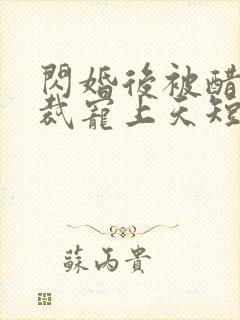 閃婚後被醋
裁寵上天短
蘇丙貴